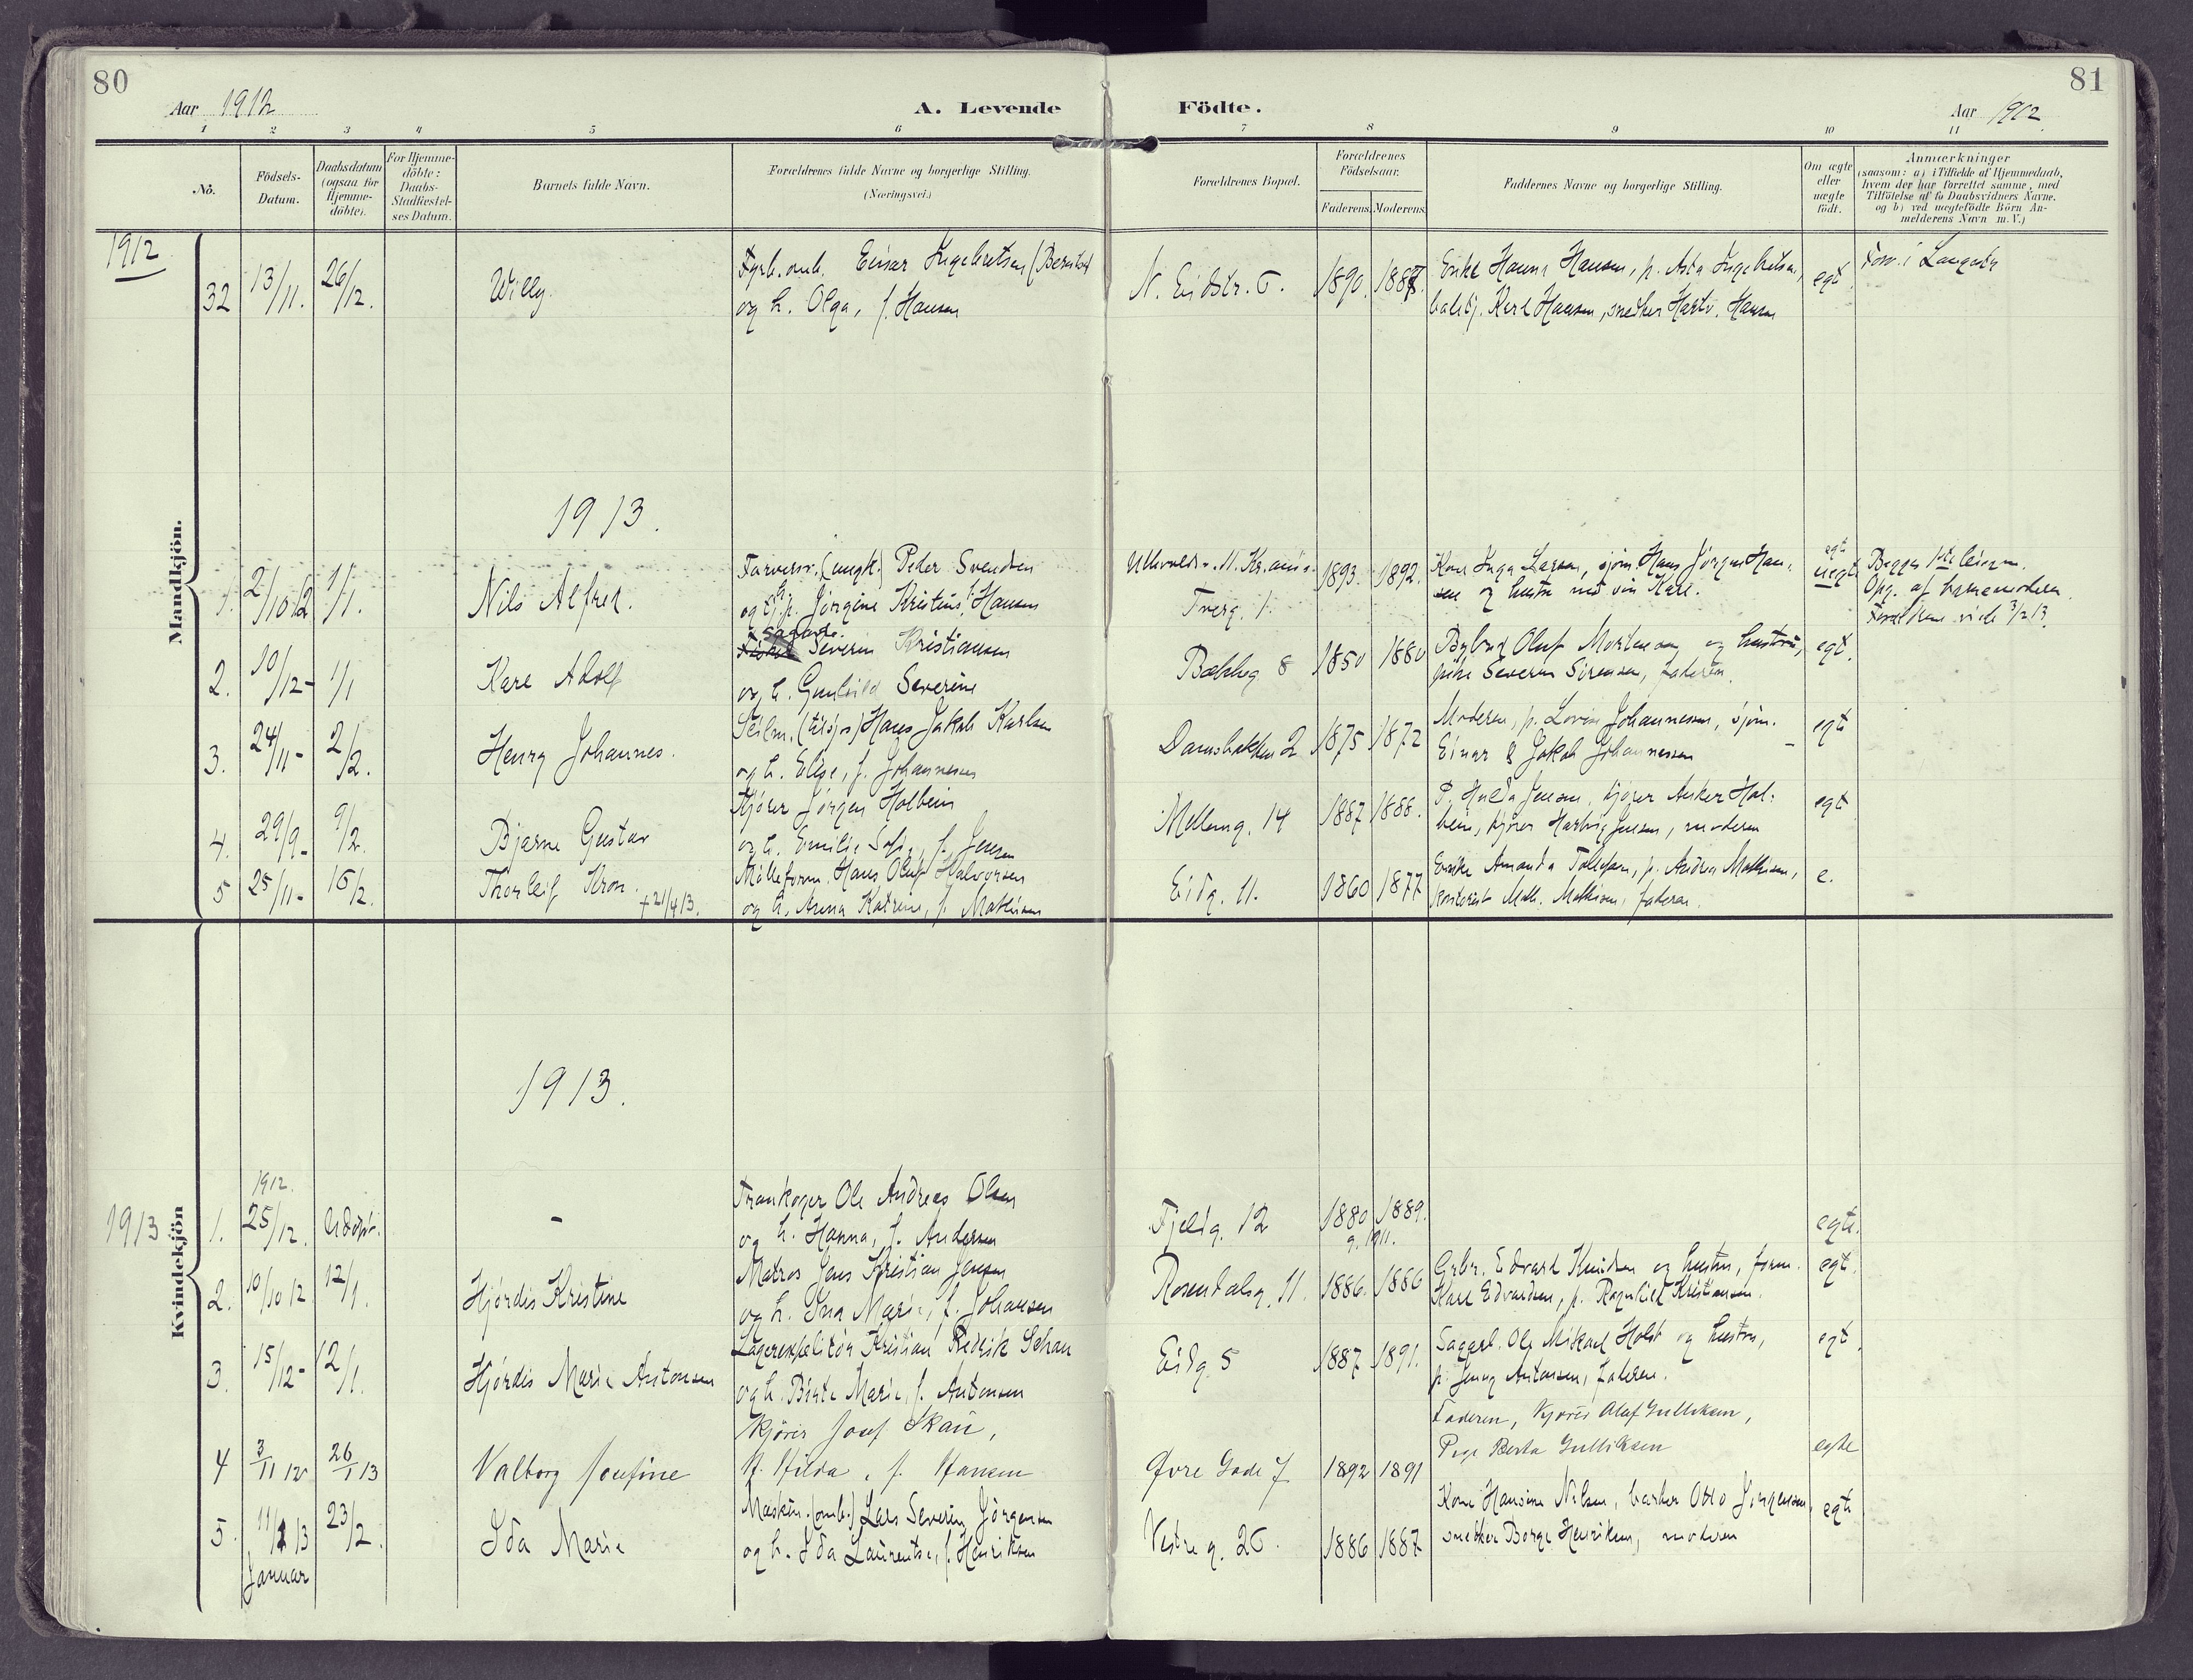 80
Aar 1912
A. Levende Födte.
Aar 1912
81
1 2 3 4 5 6 7 8 9 10 11
No.
Födsels-Datum.
Daabsdatum (ogsaa for Hjemme-döbte).
For Hjemme-döbte: Daabs-Stadfæstel-ses Datum.
Barnets fulde Navn.
Forældrenes fulde Navne og borgerlige Stilling.
(Næringsvei.)
Forældrenes Bopæl.
Forældrenes Födselsaar.
Faderens. Moderens.
Faddernes Navne og borgerlige Stilling.
Om ægte eller uægte födt.
Anmærkninger
(saasom: a) i Tilfælde af Hjemmedaab, hvem der har forrettet samme, med Tilföielse af to Daabsvidners Navne, og b) ved uægtefödte Börn Anmelderens Navn m. V.)
Mandkjön.
1912
32 13/11. 26/12. Willy. Fyrb. Einar Ingebretsen
og h. Olga, f. Hansen
N. Eidstr. 6. 1890. Enke Hanna Hansen, p. Asta Ingebretsen,
Karl Hansen, snedker Hartv. Hansen
egt.
1913.
1. 2/10 12 1/1. Nils Alfred. Farversv. (ungk.) Peder Svendsen
og p. Jörgine Kristine Hansen
Tverg. 1. 1893. 1892. Kone Inga Larsen, sjöm. Hans Jörgen Han-
sen og hustru
egte
uegte
Begges 1ste leierm.
Opg. af barnemoderen
Foreldrene viede 3/2 13.
2. 10/12- 1/1 Kare Adolf Severin Kristiansen
og h. Gunhild Severine
Bakkeg 8 1850 1880 Olup Mortensen og hustru,
Severin Sörensen, faderen.
egt.
3. 24/11- 2/2. Henry Johannes. Seilm. (tilsjøs) Hans Jakob Karlsen
og h. Elise, f. Johannesen
Damsbakken 2 1875 1872 Moderen, p. Lovise Johannessen, sjöm.
Einar & Jakob Johannessen
egt
4. 29/9- 9/2. Bjarne Gustav Kjörer Jörgen Holbein
og h. Emilie Sofie, f. Jensen
Mellemg. 14 1887 1888. P. Hulda Jensen, kjörer Anker Hol-
bein, kjörer Hartvig Jensen, moderen
egt
5 25/11- 16/2. Thorleif Kron. +21/4 13. Mölleform. Hans Oluf Halvorsen
og h. Anna Katrine, f. Mathisen
Eidg. 11. 1860 1877 Enke Amanda Tollefsen, p. Andrea Mathisen,
kontorist Math. Mathisen, faderen.
e.
Kvindekjön
1913.
1913
1912.
1. 25/12. Udöpt. - Trankoger Ole Andreas Olsen
og h. Hanna, f. Andersen
Fjeldg. 12 1880 1889.
g. 1911.
egte.
2. 10/10 12 12/1. Hjördis Kristine Matros Jens Kristian Jensen
og h. Ina Marie, f. Johansen
Rosendalsg. 11. 1886. 1886 Edvard Knudsen og hustru, form.
Karl Edvardsen, p. Ragnhild Kristiansen.
egt.
3. 15/12- 12/1. Hjördis Marie Antonsen Lagerexpeditör Kristian Redrik Schau
og h. Birte Marie, f. Antonsen
Eidg. 5 1887 1891. Sagarb. Ole Mikael Holst og hustru,
p. Jenny Antonsen, faderen.
egt.
4 3/11 12 26/1 13 Valborg Josefine Kjörer Josef Skau,
H. Hilda, f. Hansen
Øvre Gade 7 1892 1891 Faderen, Kjörer Olaf Gulliksen,
Pige Berta Gulliksen
egte
5. 11/1 13 23/2. Januar Ida Marie Maskin. (omb.) Lars Severin Jörgensen
og h. Ida Laurentse, f. Henriksen
Vestre g. 26. 1886 1887 Kone Hansine Nilsen, Otto Jörgensen,
snedker Borge Henriksen, moderen
egte